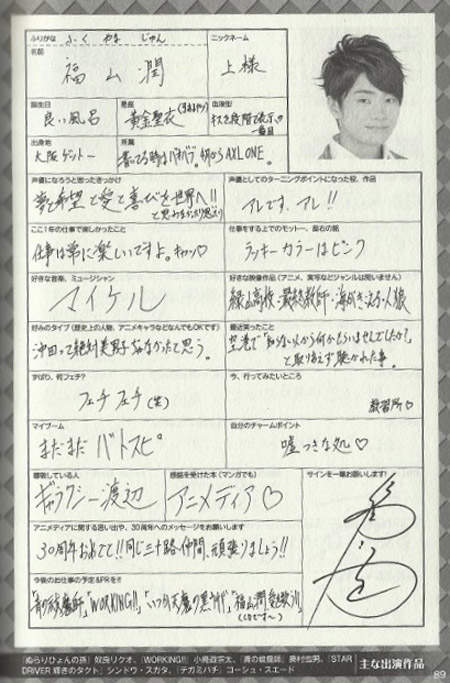 ふりがな
ふく やま じゅん
ニックネーム
名前
福山潤
上様
誕生日
星座
血液型
良い風呂
黄金聖衣
出身地
所属
大阪ゲットー
声優になろうと思ったきっかけ
声優としてのターニングポイントになった役、作品
夢と希望と愛と喜びを世界へ!!
アレです、アレ!!
ここ1年の仕事で楽しかったこと
仕事をする上でのモットー、座右の銘
仕事は常に楽しいですよ。キャッ♡
ラッキーカラーはピンク
好きな音楽、ミュージシャン
好きな映像作品(アニメ、実写などジャンルは問いません)
マイケル
好みのタイプ(歴史上の人物、アニメキャラなどなんでもOKです)
最近笑ったこと
沖田って絶対美男子じゃなかったと思う。
ずばり、何フェチ?
今、行ってみたいところ
フェチフェチ(笑)
教習所♡
マイブーム
自分のチャームポイント
まだまだバトスピ
嘘つきな処♡
尊敬している人
感銘を受けた本(マンガでも)
サインを一筆お願いします!
ギャラクシー渡辺
アニメディア♡
アニメディアに関する思い出や、30周年へのメッセージをお願いします
30周年おめでとう!!同じ三十路仲間、頑張りましょう!!
今後のお仕事の予定&PRを!!
「青の祓魔師」「WORKING!!」「いつか天魔の黒うさぎ」
「ぬらりひょんの孫」奴良リクオ、「WORKING!!」小鳥遊宗太、「青の祓魔師」奥村雪男、「STAR
DRIVER 輝きのタクト」シンドウ・スガタ、「テガミバチ」ゴーシュ・スエード
主な出演作品
89